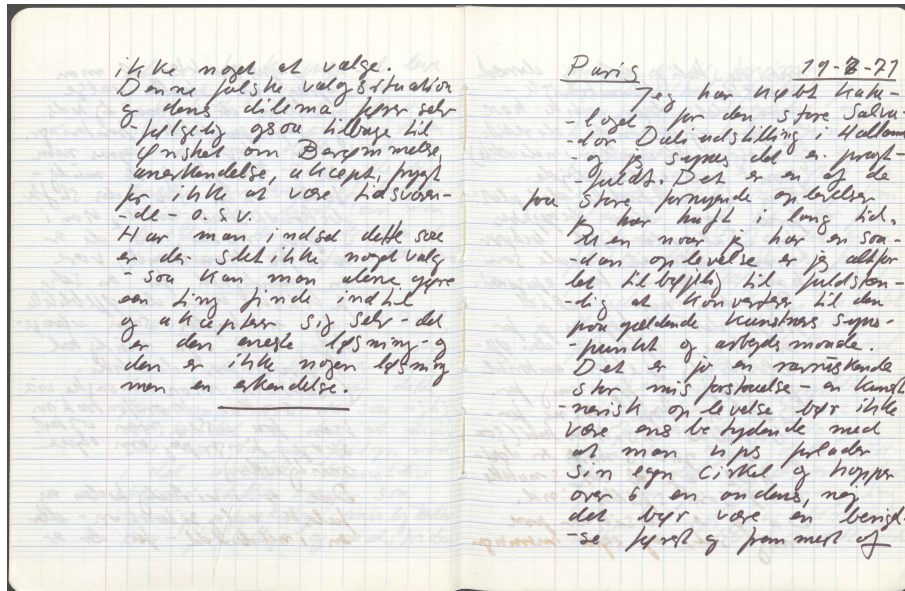 ikke noget at vælge.
Denne falske valgsituation
og dens dilema fører selv-
-følgelig ogsaa tilbage til
Ønsket om Berømmelse,
anerkendelse, akcept, frygt
for ikke at være tidssvaren-
-de - o.s.v.
Har man indset dette saa
er der slet ikke noget valg
- saa kan man alene gøre
een ting finde indtil
og akcepterer sig selv - det
er den eneste løsning - og
den er ikke nogen løsning
men en erkendelse.
Paris 19-8-71
Jeg har købt Kata-
-loget for den store Salva-
-dor Dali udstilling i Holland
- og jeg synes det er pragt-
-fuldt. Det er en af de
faa store fornyende oplevelser
jeg har haft i lang tid.
Men naar jeg har en saa-
-dan oplevelse er jeg altfor
let tilbøjlig til fuldstæn-
-dig at konverterer til den
paagældende Kunstners syns-
-punkt og arbejdsmaade.
Det er jo en rærrüskende
stor misforstaaelse - en kunst-
-nerisk oplevelse bør ikke
være ens betydende med
at man vips forlader
sin egen Cirkel og hopper
over i en andens, nej
det bør være en berigel-
-se først og fremmest af